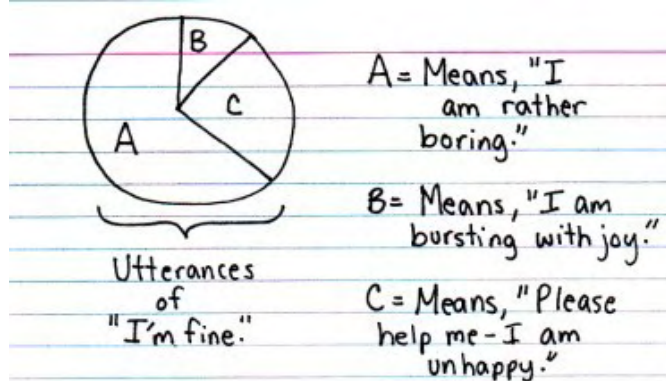 B
C
A
Utterances
of
"I'm fine."
A = Means, "I
am rather
boring."
B = Means, "I am
bursting with joy."
C = Means, "Please
help me - I am
unhappy."